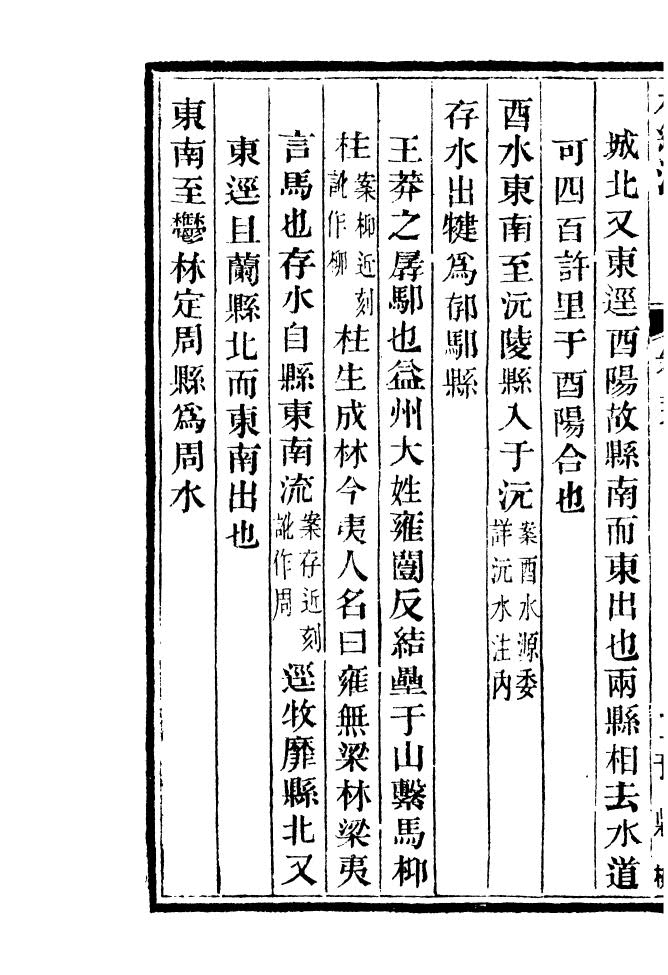 城北又東逕酉陽故縣南而東出也兩縣相去水道
可四百許里于酉陽合也
酉水東南至沅陵縣入于沅案酉水源委詳沅水注內
存水出犍爲郁鄢縣
王莽之孱鄢也益州大姓雍闓反結壘于山繫馬枊
柱案枊近刻訛作柳柱生成林今夷人名曰雍無梁林梁夷
言馬也存水自縣東南流案存近刻訛作周逕牧靡縣北又
東逕且蘭縣北而東南出也
東南至鬱林定周縣爲周水